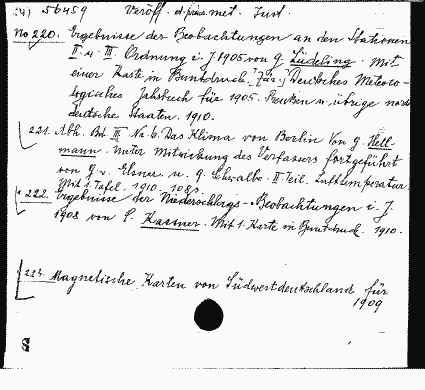 (4) 56459 Veröff. d. preuss. met. Inst.
No 220. Ergebnisse der Beobachtungen an den Stationen
II. u. III. Ordnung i. J. 1905 von G. Lüdeling. Mit
einer Karte in Buntdruck. Deutsches Meteoro-
logisches Jahrbuch für 1905. Preußen u. übrige nord-
deutsche Staaten. 1910.
221. Abh. Bd. III No. 6. Das Klima von Berlin Von G. Hell-
mann. Unter Mitwirkung des Verfassers fortgeführt
von G. v. Elsner u. G. Schwalbe. II. Teil. Lufttemperatur.
Mit 1 Tafel. 1910. 108 S.
222. Ergebnisse der Niederschlags-Beobachtungen i. J.
1908 von C. Kassner. Mit 1 Karte in Buntdruck. 1910.
223. Magnetische Karten von Südwestdeutschland für
1909